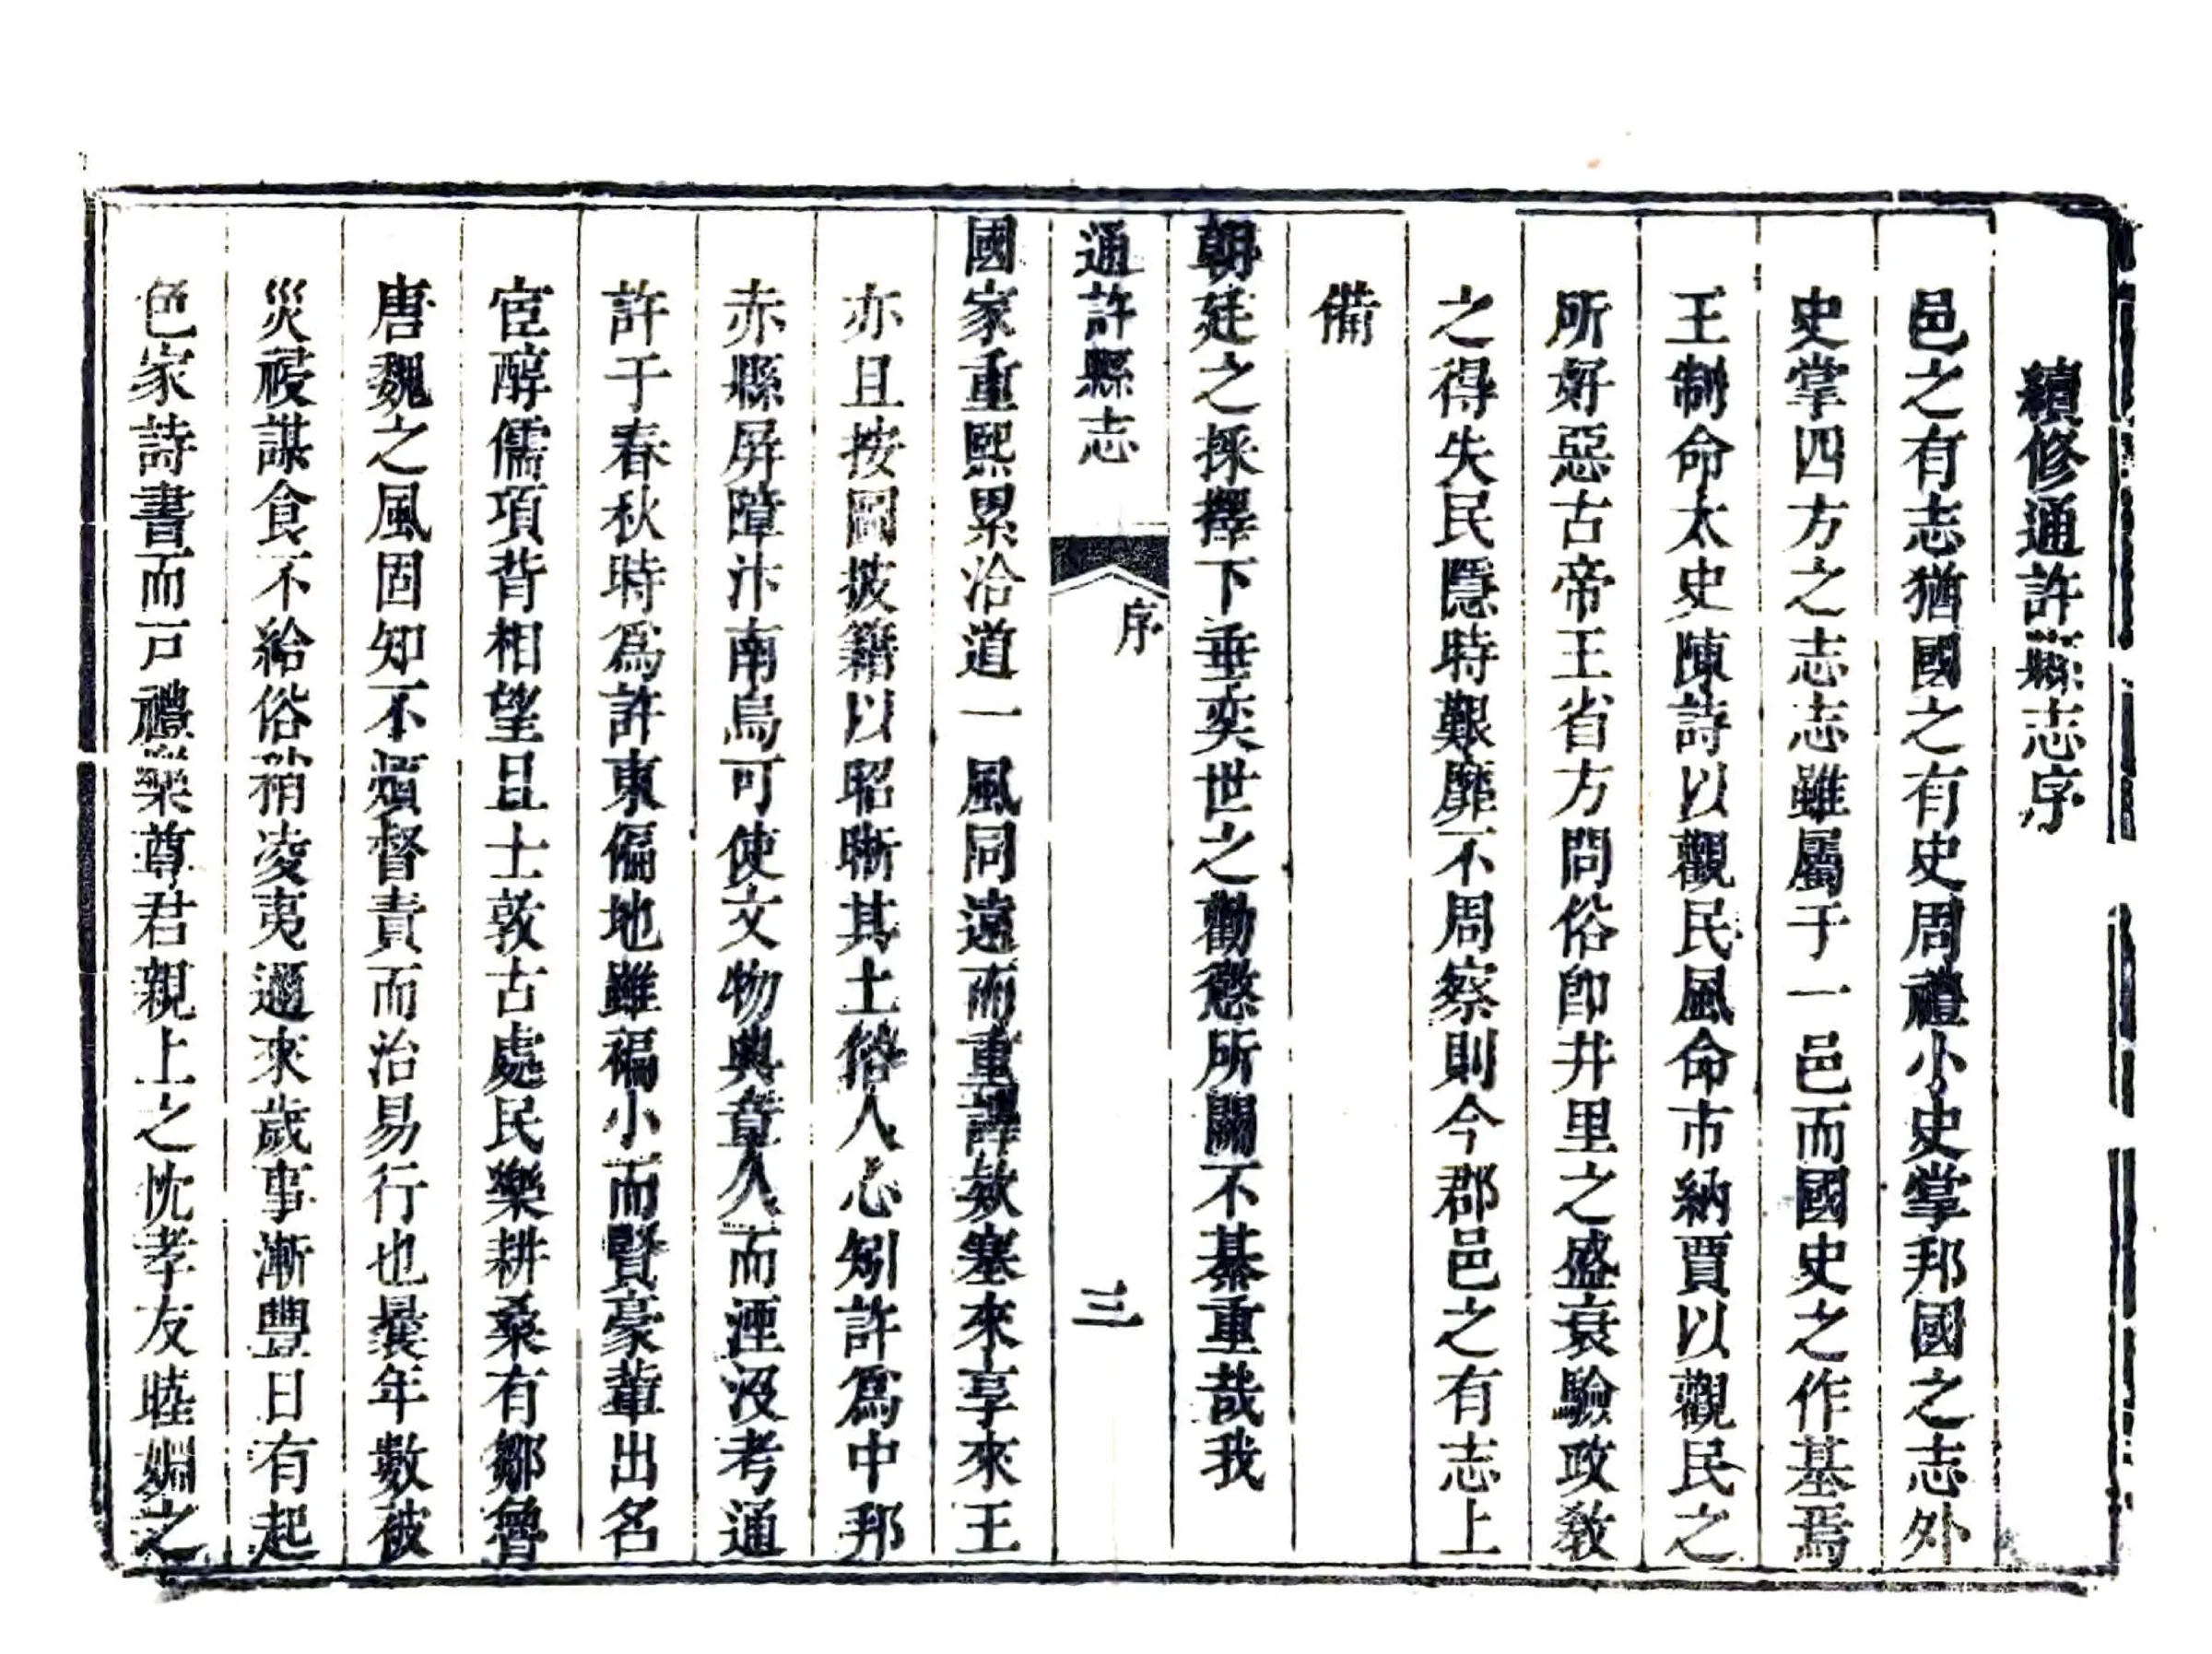 續修通許縣志序
邑之有志猶國之有史周禮小史掌邦國之志外
史掌四方之志志雖屬于一邑而國史之作基焉
王制命太史陳詩以觀民風命市納賈以觀民之
所好惡古帝王省方問俗卽井里之盛衰驗政敎
之得失民隱時艱靡不周察則今郡邑之有志上
備
朝廷之採擇下垂奕世之勸懲所關不綦重哉我
通許縣志
序
三
國家重熙累洽道一風同遠而重譯欸塞來享來王
亦且按圖披籍以昭晰其土俗人心矧許爲中邦
赤縣屏障汴南烏可使文物典章人人而湮沒考通
許于春秋時爲許東偏地雖褊小而賢豪輩出名
宦醇儒項背相望且士敦古處民樂耕桑有鄒魯
唐魏之風固知不煩督責而治易行也曩年數被
災祲謀食不給俗稍凌夷邇來歲事漸豐日有起
色家詩書而戸禮樂尊君親上之忱孝友睦婣之